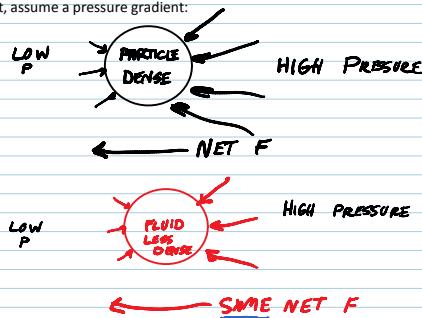 t, assume a pressure gradient:
LOW
P
PARTICLE
DENSE
HIGH PRESSURE
NET F
LOW
P
FLUID
LESS
DENSE
HIGH PRESSURE
SAME NET F